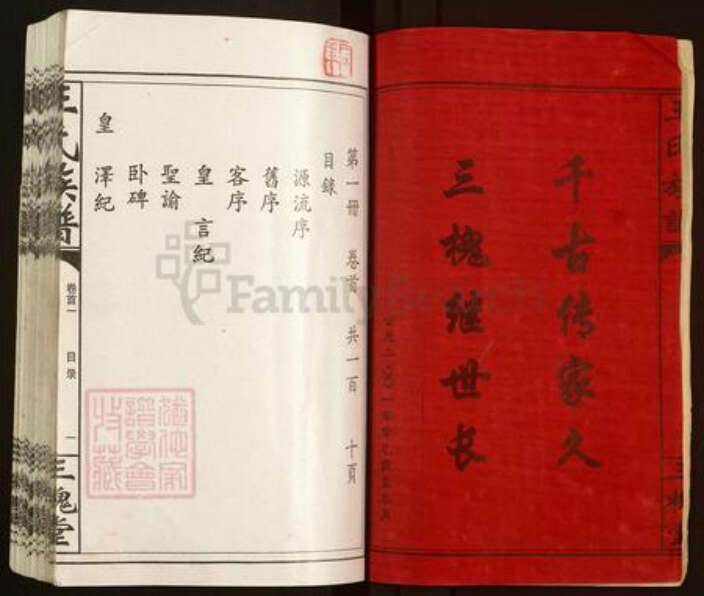 千古传家久
三槐继世长
王氏族譜
三槐堂
第一冊 卷首 共一百 十頁
目録
源流序
舊序
客序
皇 言紀
聖諭
卧碑
皇 澤紀
王氏族譜
卷首一 目录 一
三槐堂
Family